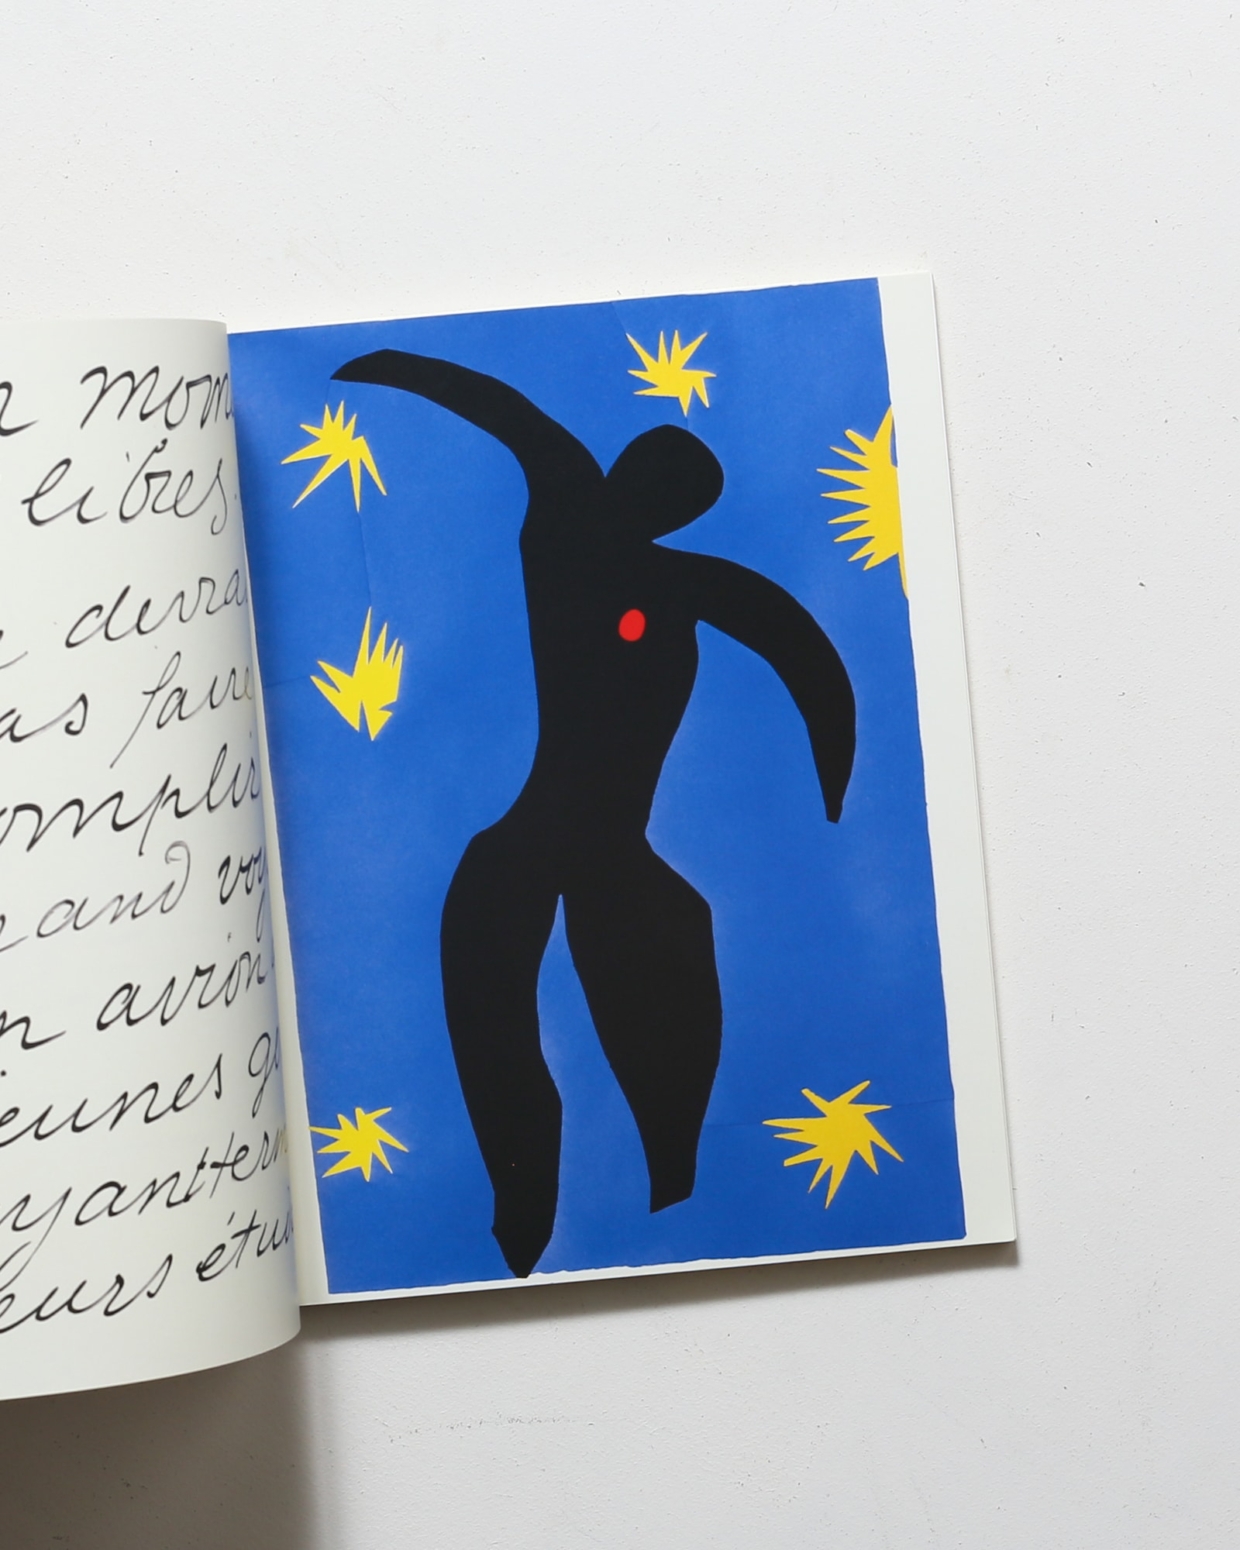 n mom
libres.
devra
as faire
omplir
rand voy
n avion
eunes ge
yant term
leurs étu